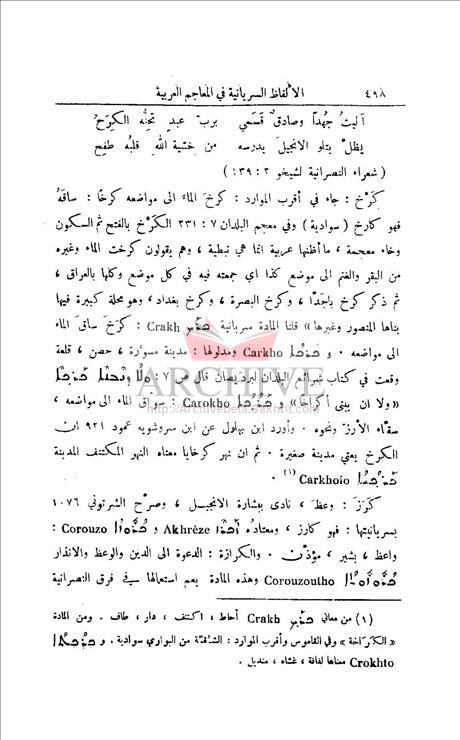 ٤٩٨ الألفاظ السريانية في المعاجم العربية
آليتُ جُهداً وصادقٌ قَسَمي برب عبدٍ تجنُّه الكِرَحُ
يظلّ يتلو الانجيلَ يدرسه من خشية اللهِ قلبُه طفِح
( شعراء النصرانية لشيخو ٢ : ٣٩ )
كَرَخ : جاء في أقرب الموارد : كرخَ الماءَ الى مواضعه كرخًا : ساقَهُ
فهو كارخ ( سوادية ) وفي معجم البلدان ٧ : ٢٣١ الكَرْخ بالفتح ثم السكون
وخاء معجمة ، ما أظنها عربية إنما هي نبطية ، وهم يقولون كرخت الماء وغيره
من البقر والغنم الى موضع كذا اي جمعته فيه في كل موضع وكلها بالعراق ،
ثم ذكر كرخ باجَدّا ، وكرخ البصرة ، وكرخ بغداد ، وهو محلة كبيرة فيها
بناها المنصور وغيرها » قلنا المادة سريانية ܟܪܟ Crakh : كرَخ ساق الماء
الى مواضعه . و ܟܪܟܐ Carkho ومدلولها : مدينة مسوّرة ، حصن ، قلعة
وقعت في كتاب شرائع البلدان لبرديصان قال ص ٧ :
« ولا ان يبنى أكراخًا » و ܟܪܘܟܐ Carokho : سوّاق الماء الى مواضعه ،
سقّاء الأرزّ ونحوه . وأورد ابن بهلول عن ابن سروشويه عمود ٩٢١ ان
الكرخ يعني مدينة صغيرة . ثم ان نهر كرخايا معناه النهر المكتنف المدينة
ܟܪܟܝܐ Carkhoio (١) .
كَرَزَ : وعظ ، نادى ببشارة الانجيل ، وصرّح الشرتوني ١٠٧٦
بسريانيتها : فهو كارز ، ومعتادُه ܐܟܪܙ Akhrèze و ܟܪܘܙܐ Corouzo :
واعظ ، بشير ، مؤذن . والكرازة : الدعوة الى الدين والوعظ والانذار
ܟܪܘܙܘܬܐ Corouzoutho وهذه المادة يعم استعمالها في فرق النصرانية
(١) من معاني ܟܪܟ Crakh أحاط ، اكتنف ، دار ، طاف . ومن المادة
« الكرّاخة » وفي القاموس وأقرب الموارد : الشُقّة من البواري سوادية . و ܟܪܟܬܐ
Crokhto معناها لفافة ، غشاء ، منديل .
ARCHIVE
http://Archivebeta.Sakhrit.com